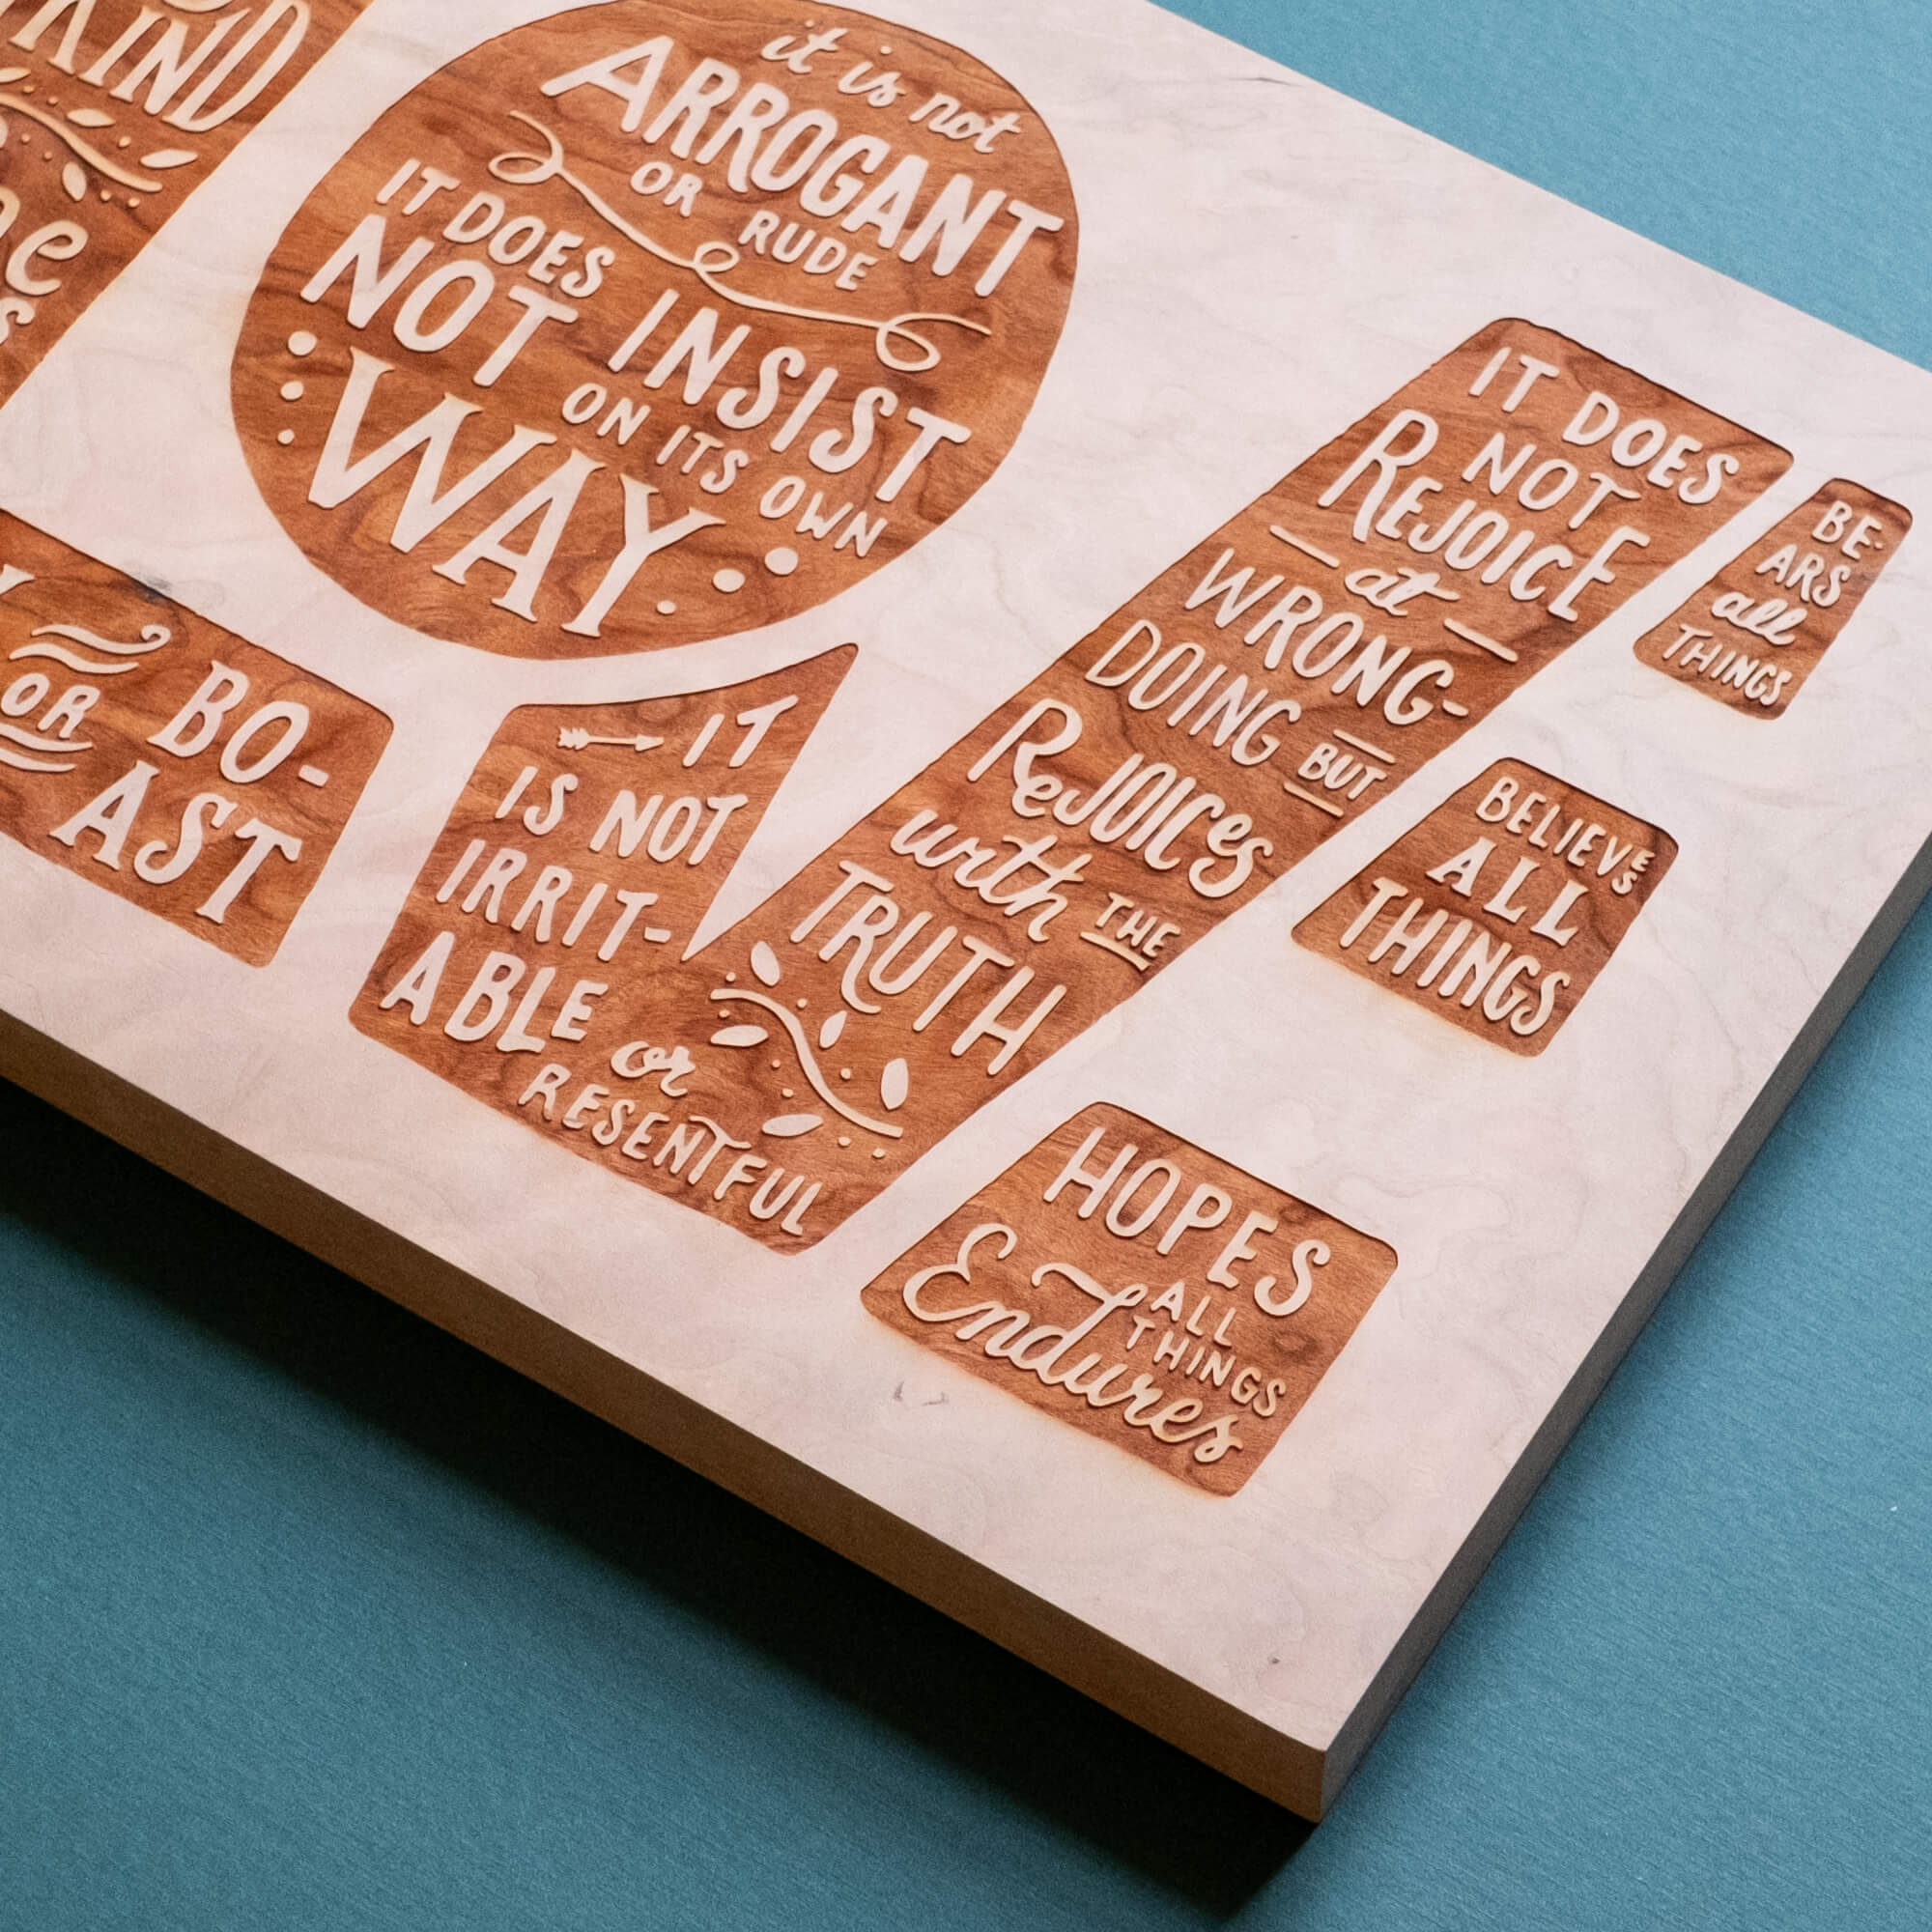 KIND
OR BO-
AST
it is not
ARROGANT
OR RUDE
IT DOES
NOT INSIST
ON ITS OWN
WAY
IT
IS NOT
IRRIT-
ABLE or
RESENTFUL
IT DOES
NOT
REJOICE
at
WRONG-
DOING BUT
REJOICES
with THE
TRUTH
BE-
ARS
all
THINGS
BELIEVES
ALL
THINGS
HOPES
ALL
THINGS
Endures